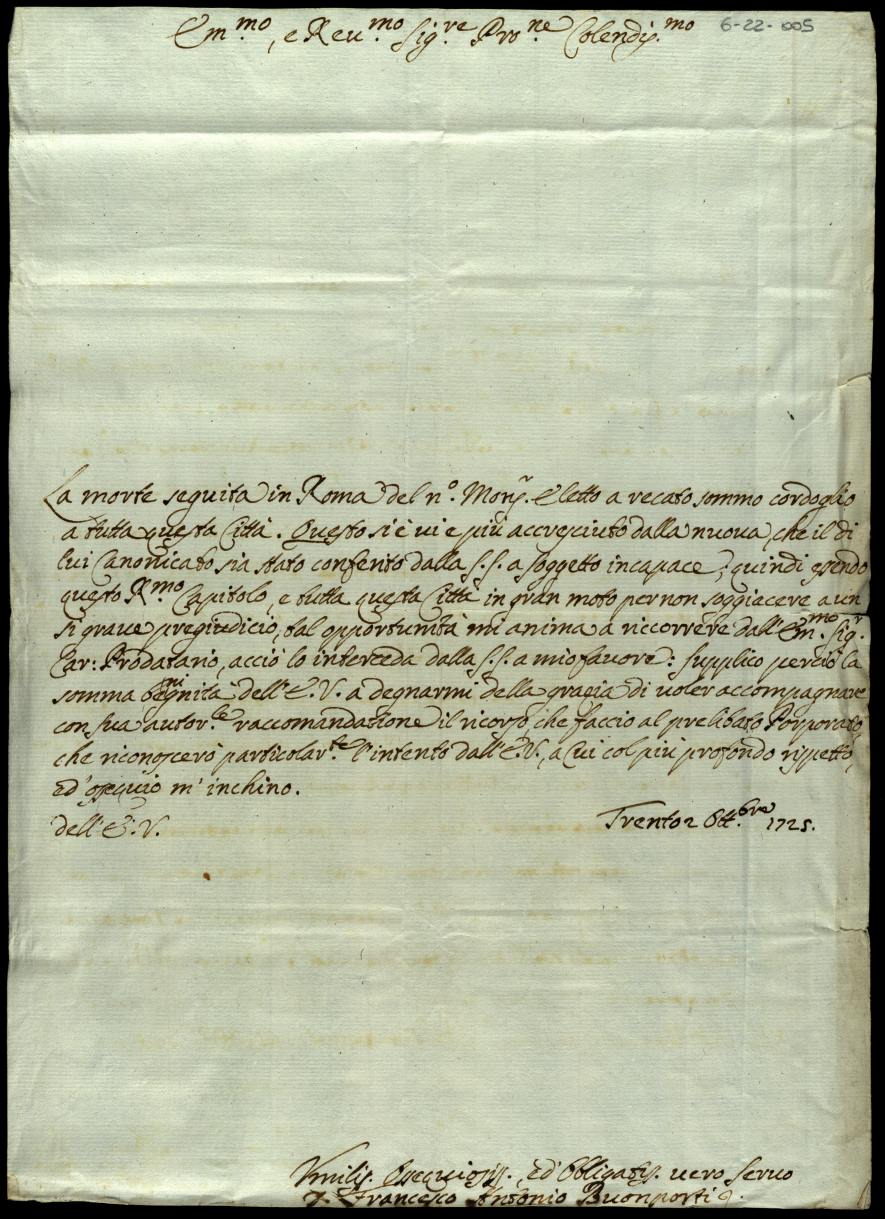 Em.mo, e Reu.mo Sig.re Pro.ne Colendis.mo
6-22-005
La morte seguita in Roma del n.o Mons.r Eletto a recato sommo cordoglio
a tutta questa Città. Questo si è vie più accresciuto dalla nuova, che il di
lui Canonicato sia stato conferito dalla S.S. a soggetto incapace; quindi essendo
questo R.mo Capitolo, e tutta questa Città in gran moto per non soggiacere a un
si graue pregiudicio, tal opportunità mi anima a riccorrere dall'Em.mo Sig.r
Car: Prodatario, acciò lo interceda dalla S.S. a mio fauore: supplico perciò la
somma benignità dell'E.V. a degnarmi della grazia di uoler accompagnare
con sua autor.le raccomandatione il ricorso, che faccio al prelibato Porporato,
che riconoscerò particolar.te l'intento dall'E.V., a Cui col più profondo rispetto,
ed'ossequio m'inchino.
dell'E.V.
Trento 2 Ott.bre 1725.
Vmilis. Ossequiosis., ed'Obligatis. uero Seruo
Francesco Antonio Buonporti